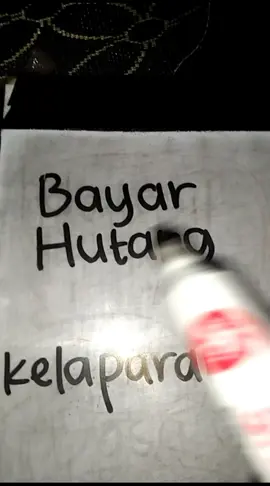 Bayar
Hutang
kelapara